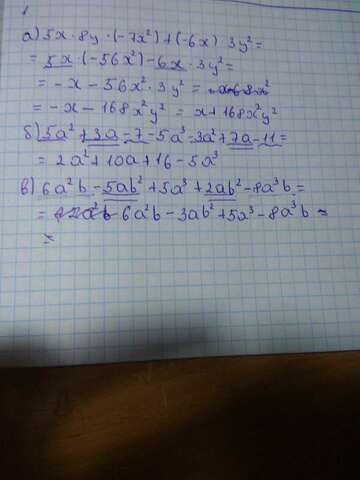 1
а) 5x · 8y · (-7x²) + (-6x) · 3y² =
= 5x · (-56x²) - 6x · 3y² =
= -x - 56x² · 3y² =
= -x - 168x²y² = x + 168x²y²
б) 5a² + 3a - 7 - 5a³ - 3a² + 7a - 11 =
= 2a² + 10a + 16 - 5a³
в) 6a²b - 5ab² + 5a³ + 2ab² - 8a³b =
= 6a²b - 3ab² + 5a³ - 8a³b =
=